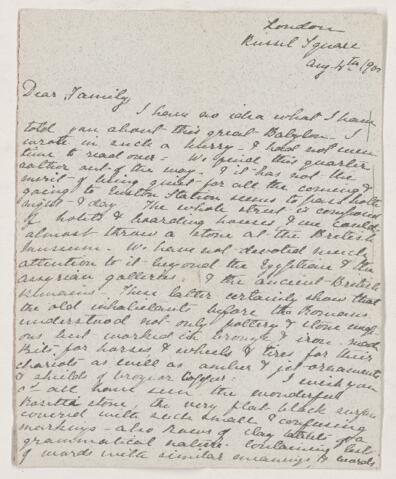 London
Russel Square
Aug. 4th 190
Dear Family,
I have no idea what I have
told you about this great Babylon - I
wrote in such a hurry - I had not even
time to read over - We find this quarter
rather out of the way. I it has not the
merit of being quiet for all the coming &
going to Euston Station seems to pass both
night & day. The whole street is composed
of hotels & boarding houses & we could
almost throw a stone at the British
Museum. We have not devoted much
attention to it beyond the Egyptian & the
Assyrian galleries & the ancient British
remains. These latter certainly show that
the old inhabitants before the Romans
understood not only pottery & stone
ous but worked in bronze & iron - made
bits for horses & wheels & tires for their
chariots as well as amber & jet ornaments
& shields of bronze or copper. I wish you
all have seen the wonderful
Rosetta stone - the very flat black surface
covered with such small & confusing
markings - also rows of clay tablets of a
grammatical nature containing lists
of words with similar meanings & words